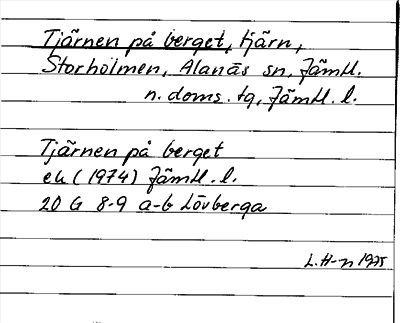 Tjärnen på berget, tjärn,
Storholmen, Alanäs sn, Jämtl.
n. doms. tg, Jämtl. l.
Tjärnen på berget
ek (1974) Jämtl. l.
20 G 8-9 a-b Lövberga
L. H-n 1975